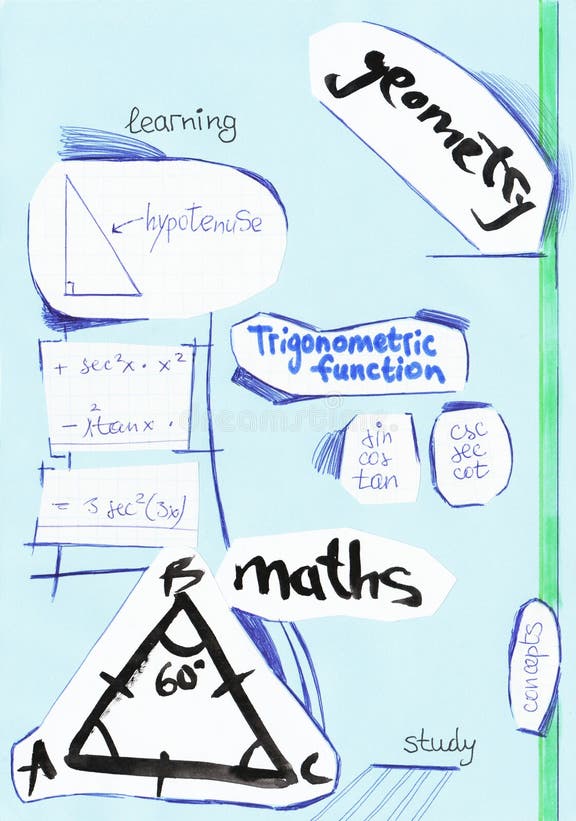 geometry
learning
hypotenuse
Trigonometric
function
+ sec²x · x²
tanx ·
sin
cos
tan
csc
sec
cot
= 3 sec²(3x)
maths
B
60°
A
C
concepts
study